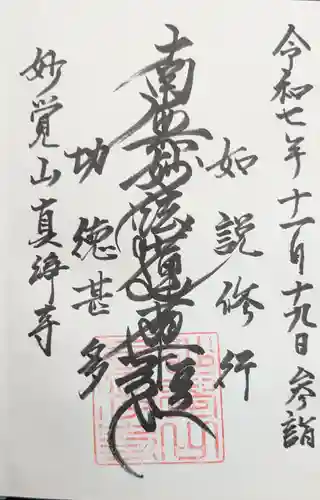 令和七年十一月十九日参詣
如説修行
南無妙法蓮華経
功徳甚多
妙覚山真浄寺